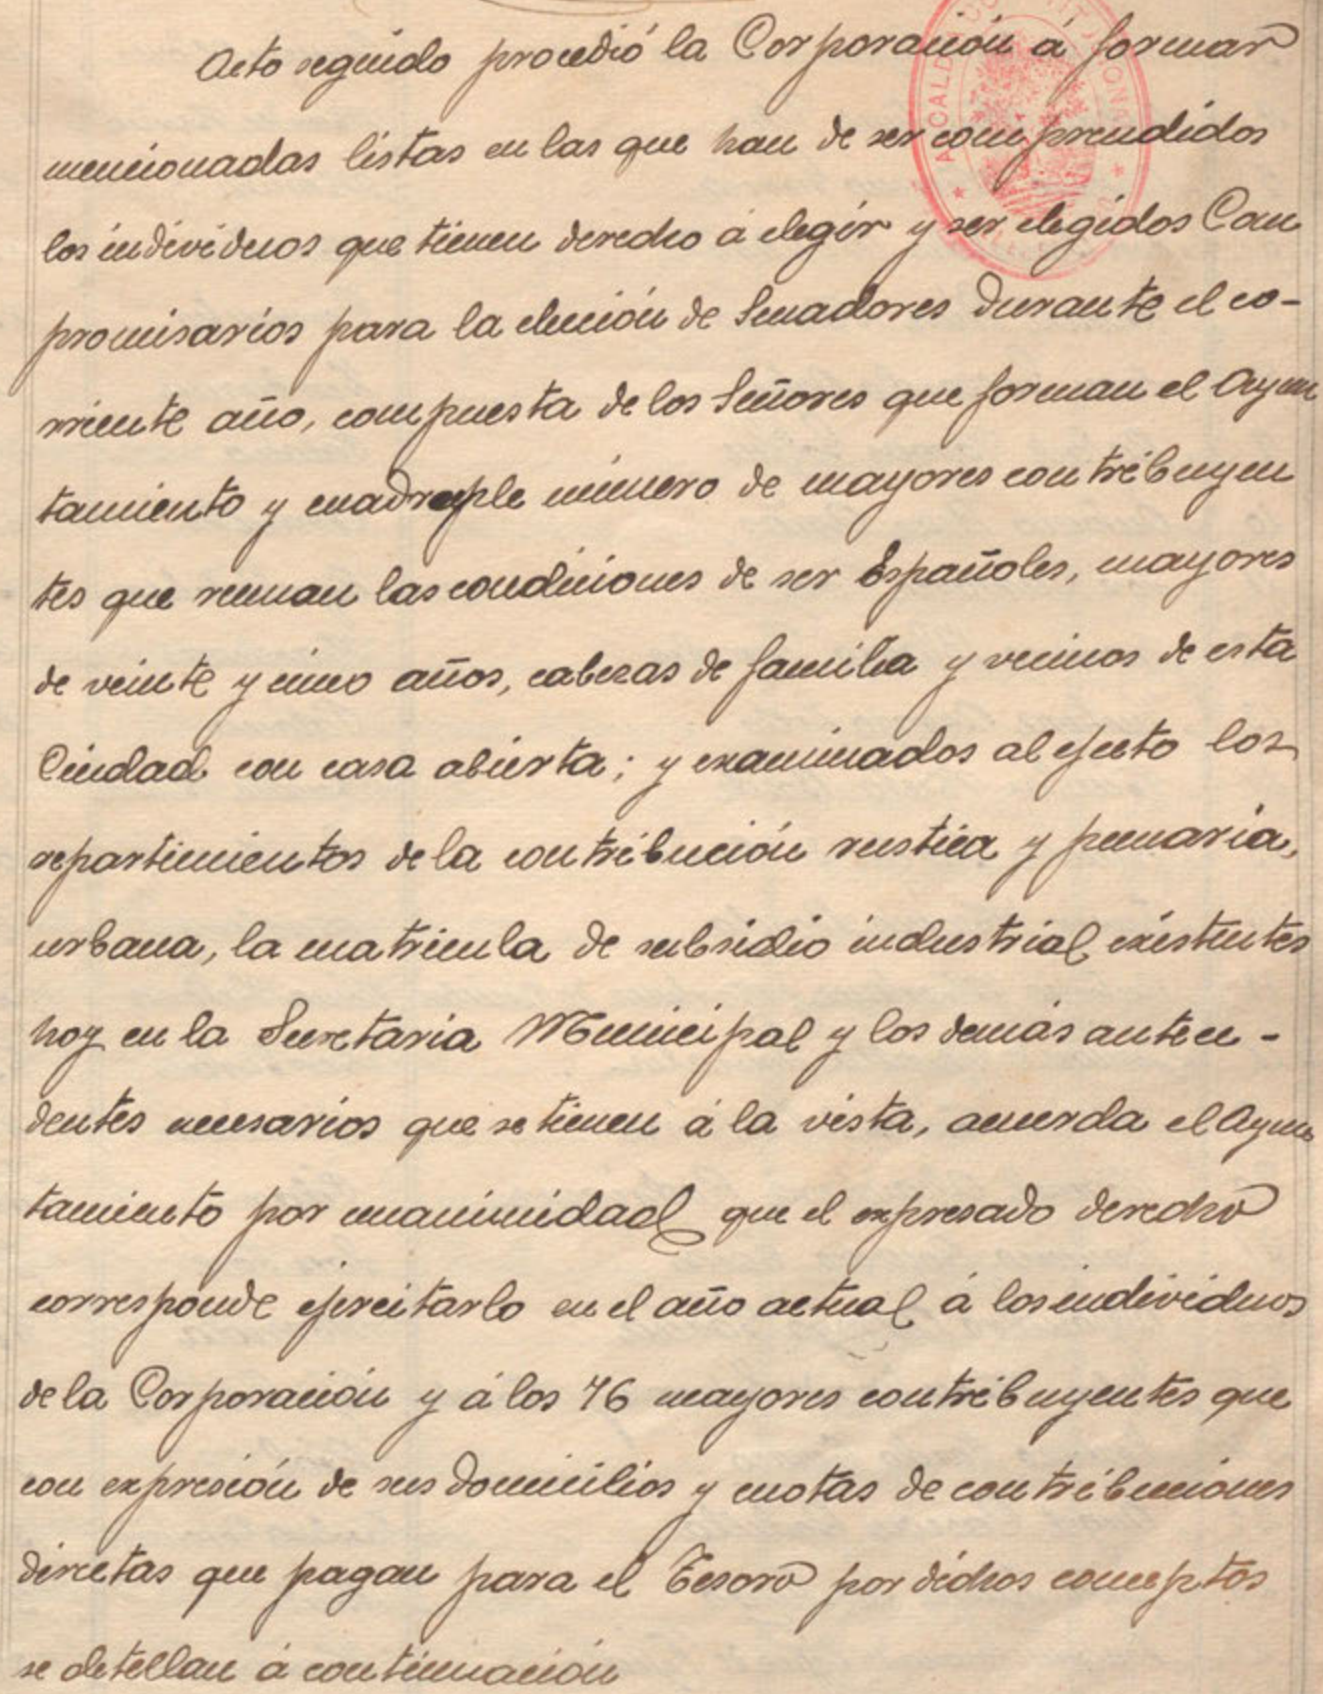 Acto seguido procedió la Corporación á formar
mencionadas listas en las que han de ser comprendidos
los individuos que tienen derecho á elegir y ser elegidos Com
promisarios para la elección de Senadores durante el co-
rriente año, compuesta de los Señores que forman el Ayun
tamiento y cuadruple número de mayores contribuyen
tes que reunan las condiciones de ser Españoles, mayores
de veinte y cinco años, cabezas de familia y vecinos de esta
Ciudad con casa abierta; y examinados al efecto los
repartimientos de la contribución rustica y pecuaria,
urbana, la matricula de subsidio industrial existentes
hoy en la Secretaria Municipal y los demás antece-
dentes necesarios que se tienen á la vista, acuerda el Ayun
tamiento por unanimidad que el expresado derecho
corresponde ejercitarlo en el año actual á los individuos
de la Corporación y á los 76 mayores contribuyentes que
con expresión de sus domicilios y cuotas de contribuciones
directas que pagan para el Tesoro por dichos conceptos
se detellan á continuación